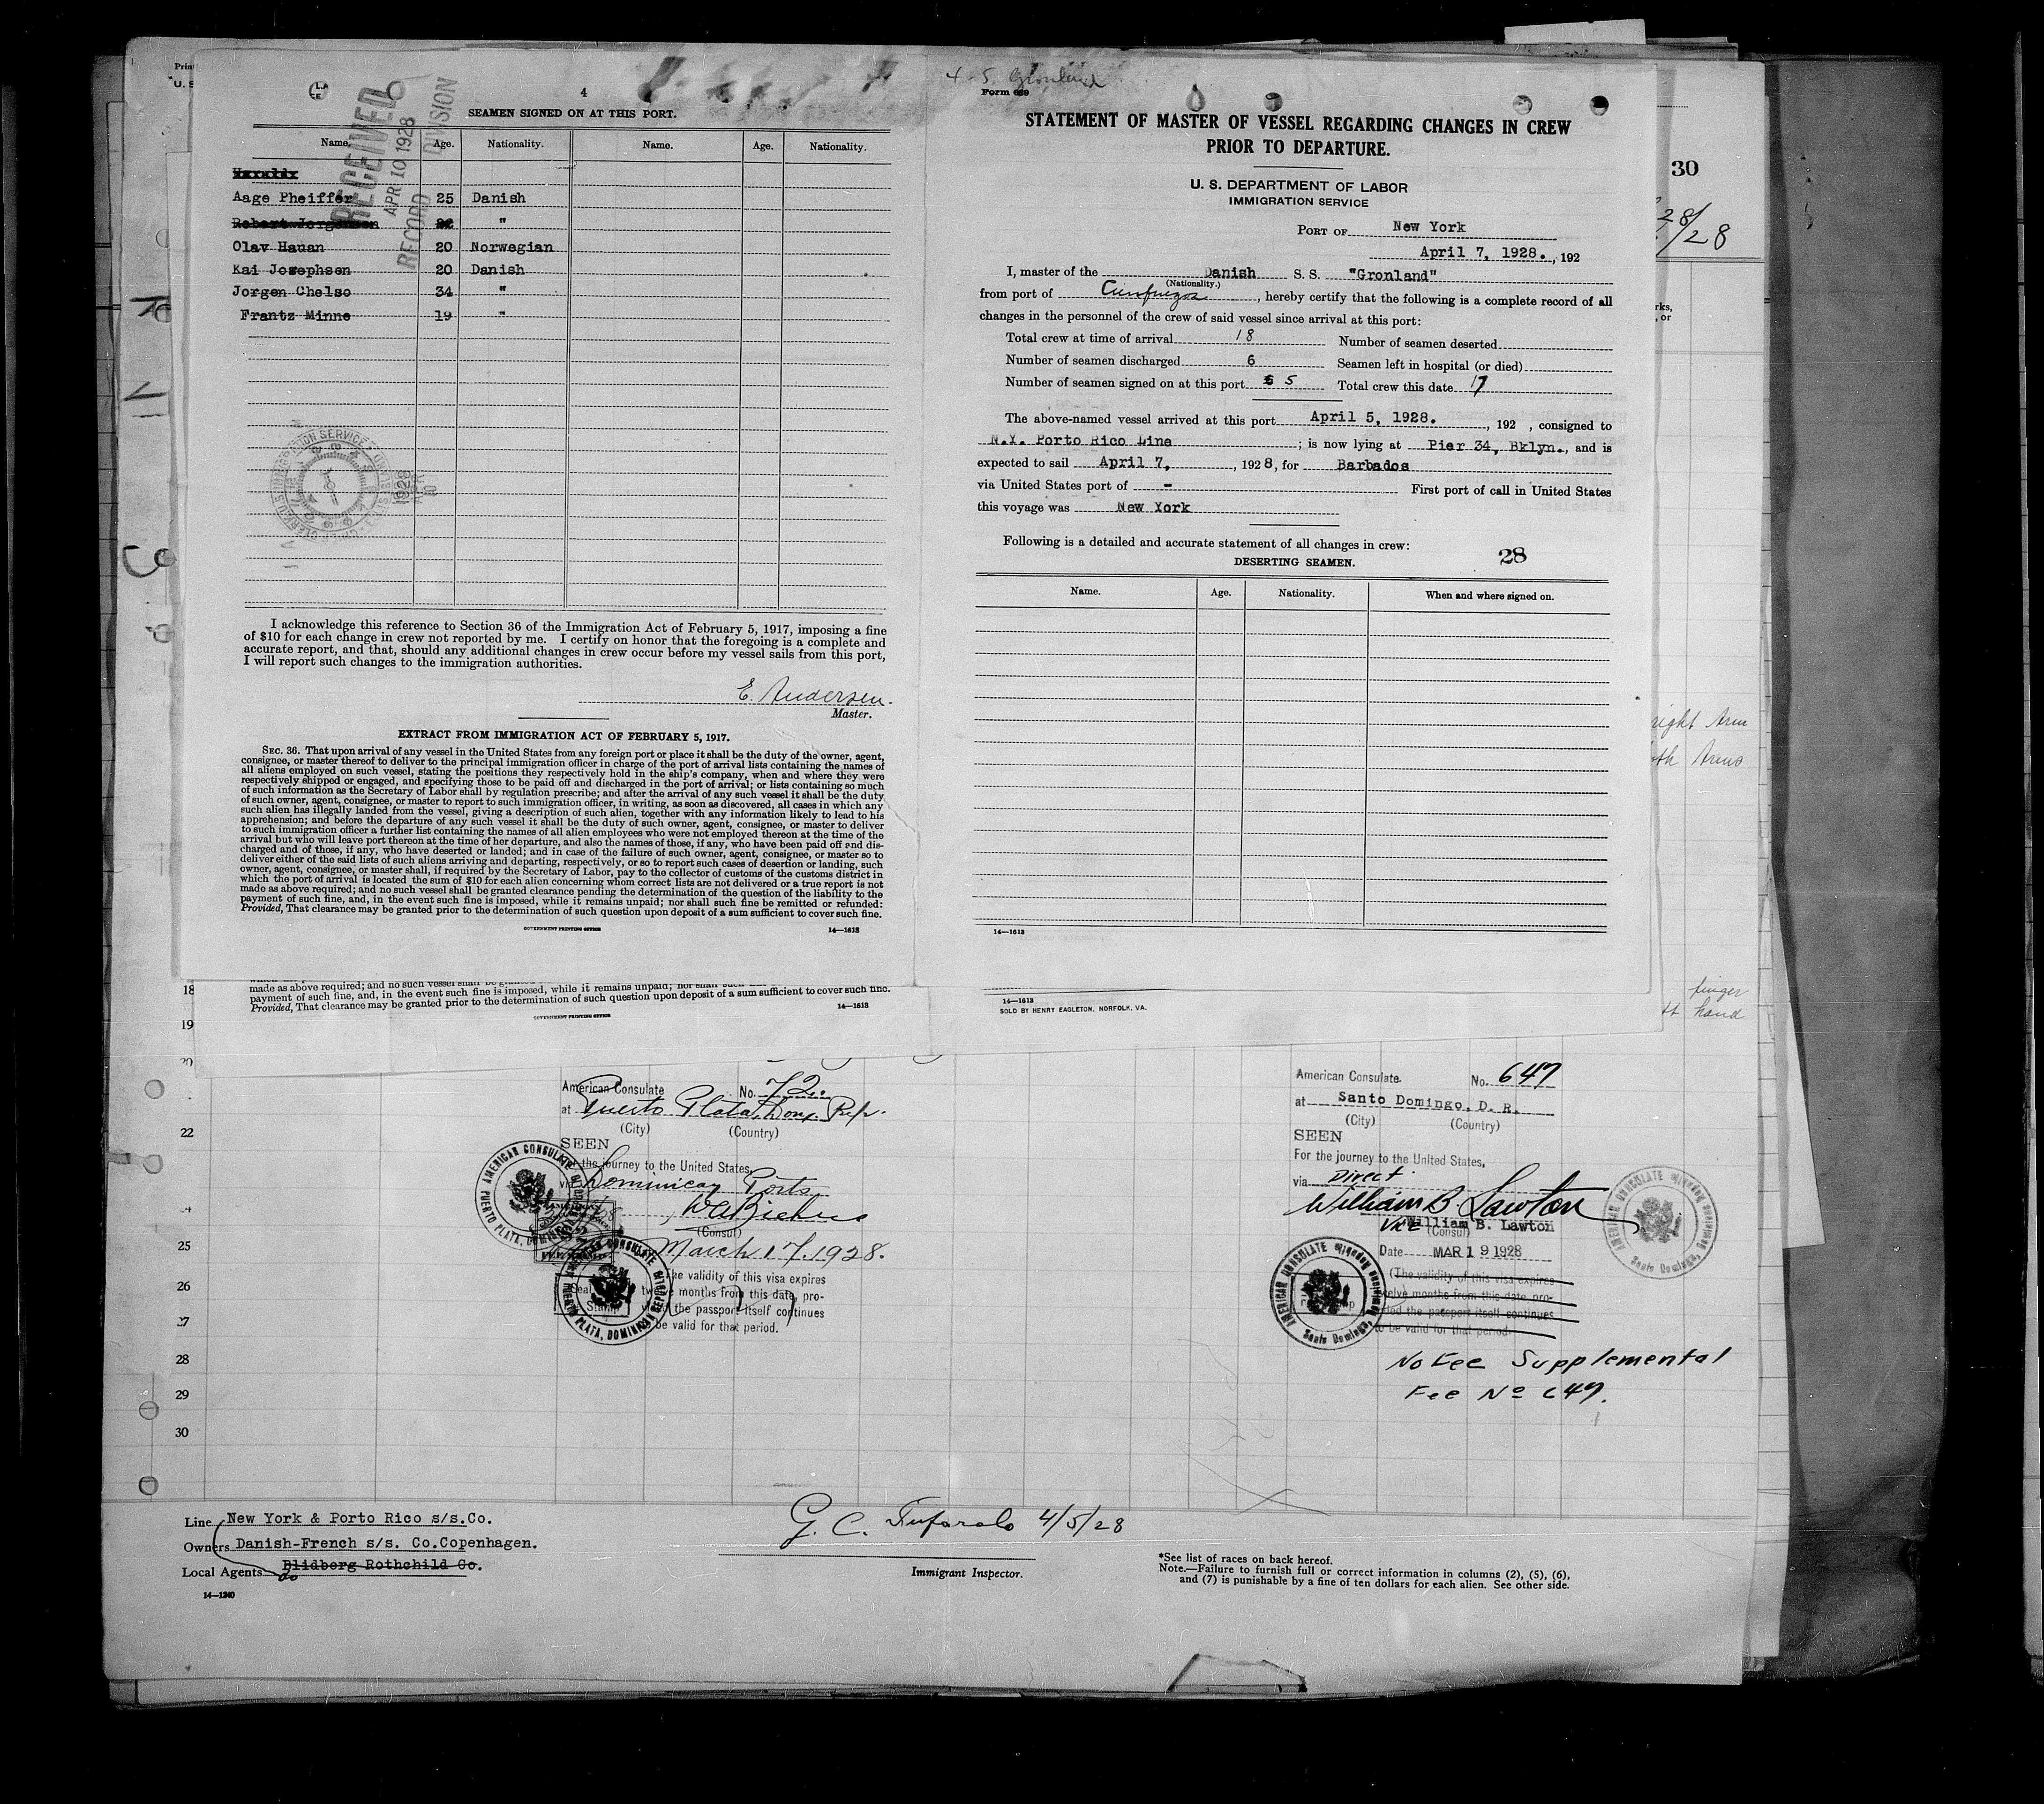 4
SEAMEN SIGNED ON AT THIS PORT.
Name. Age. Nationality. Name. Age. Nationality.
RECEIVED
APR 10 1928
RECORD DIVISION
Aage Pheiffer 25 Danish
Robert Jorgensen "
Olav Hauan 20 Norwegian
Kai Josephsen 20 Danish
Jorgen Chelso 34 "
Frantz Minne 19 "
I acknowledge this reference to Section 36 of the Immigration Act of February 5, 1917, imposing a fine
of $10 for each change in crew not reported by me. I certify on honor that the foregoing is a complete and
accurate report, and that, should any additional changes in crew occur before my vessel sails from this port,
I will report such changes to the immigration authorities.
E. Andersen.
Master.
EXTRACT FROM IMMIGRATION ACT OF FEBRUARY 5, 1917.
SEC. 36. That upon arrival of any vessel in the United States from any foreign port or place it shall be the duty of the owner, agent,
consignee, or master thereof to deliver to the principal immigration officer in charge of the port of arrival lists containing the names of
all aliens employed on such vessel, stating the positions they respectively hold in the ship's company, when and where they were
respectively shipped or engaged, and specifying those to be paid off and discharged in the port of arrival; or lists containing so much
of such information as the Secretary of Labor shall by regulation prescribe; and after the arrival of any such vessel it shall be the duty
of such owner, agent, consignee, or master to report to such immigration officer, in writing, as soon as discovered, all cases in which any
such alien has illegally landed from the vessel, giving a description of such alien, together with any information likely to lead to his
apprehension; and before the departure of any such vessel it shall be the duty of such owner, agent, consignee, or master to deliver
to such immigration officer a further list containing the names of all alien employees who were not employed thereon at the time of the
arrival but who will leave port thereon at the time of her departure, and also the names of those, if any, who have been paid off and dis-
charged and of those, if any, who have deserted or landed; and in case of the failure of such owner, agent, consignee, or master so to
deliver either of the said lists of such aliens arriving and departing, respectively, or so to report such cases of desertion or landing, such
owner, agent, consignee, or master shall, if required by the Secretary of Labor, pay to the collector of customs of the customs district in
which the port of arrival is located the sum of $10 for each alien concerning whom correct lists are not delivered or a true report is not
made as above required; and no such vessel shall be granted clearance pending the determination of the question of the liability to the
payment of such fine, and, in the event such fine is imposed, while it remains unpaid; nor shall such fine be remitted or refunded:
Provided, That clearance may be granted prior to the determination of such question upon deposit of a sum sufficient to cover such fine.
GOVERNMENT PRINTING OFFICE 14—1613
4-5 Gronland
Form 689
STATEMENT OF MASTER OF VESSEL REGARDING CHANGES IN CREW
PRIOR TO DEPARTURE.
U. S. DEPARTMENT OF LABOR
IMMIGRATION SERVICE
PORT OF New York
April 7, 1928. , 192
I, master of the Danish S. S. "Gronland"
(Nationality.)
from port of Cienfuegos , hereby certify that the following is a complete record of all
changes in the personnel of the crew of said vessel since arrival at this port:
Total crew at time of arrival 18 Number of seamen deserted
Number of seamen discharged 6 Seamen left in hospital (or died)
Number of seamen signed on at this port 6 5 Total crew this date 17
The above-named vessel arrived at this port April 5, 1928. , 192 , consigned to
N.Y. Porto Rico Line ; is now lying at Pier 34, Bklyn., and is
expected to sail April 7, , 1928, for Barbados
via United States port of - First port of call in United States
this voyage was New York
Following is a detailed and accurate statement of all changes in crew:
28
DESERTING SEAMEN.
Name. Age. Nationality. When and where signed on.
14—1613
30
28/
/28
rks,
, or
right Arm
oth Arms
finger
hand
made as above required; and no such vessel shall be
payment of such fine, and, in the event such fine is imposed, while it remains unpaid; nor shall such
Provided, That clearance may be granted prior to the determination of such question upon deposit of a sum sufficient to cover such fine.
GOVERNMENT PRINTING OFFICE 14—1613
14—1613
SOLD BY HENRY EAGLETON, NORFOLK, VA.
18
19
20
22
25
26
27
28
29
30
American Consulate No. 72.
at Puerto Plata, Dom. Rep.
(City) (Country)
SEEN
For the journey to the United States,
via Dominican Ports
(Consul)
March 17, 1928.
The validity of this visa expires
twelve months from this date, pro-
vided the passport itself continues
to be valid for that period.
AMERICAN CONSULATE PUERTO PLATA, DOMINICAN REPUBLIC
American Consulate No. 647
at Santo Domingo, D. R.
(City) (Country)
SEEN
For the journey to the United States,
via Direct
William B. Lawton
Vice William B. Lawton
(Consul)
Date MAR 19 1928
(The validity of this visa expires
twelve months from this date, pro-
vided the passport itself continues
to be valid for that period.
AMERICAN CONSULATE Santo Domingo, Dominican Republic
No Fee Supplemental
Fee No 647.
Line New York & Porto Rico s/s.Co.
Owners Danish-French s/s. Co.Copenhagen.
Local Agents Blidberg Rothchild Co.
do
14—1240
G. C. Tufarolo 4/5/28
Immigrant Inspector.
*See list of races on back hereof.
Note.—Failure to furnish full or correct information in columns (2), (5), (6),
and (7) is punishable by a fine of ten dollars for each alien. See other side.